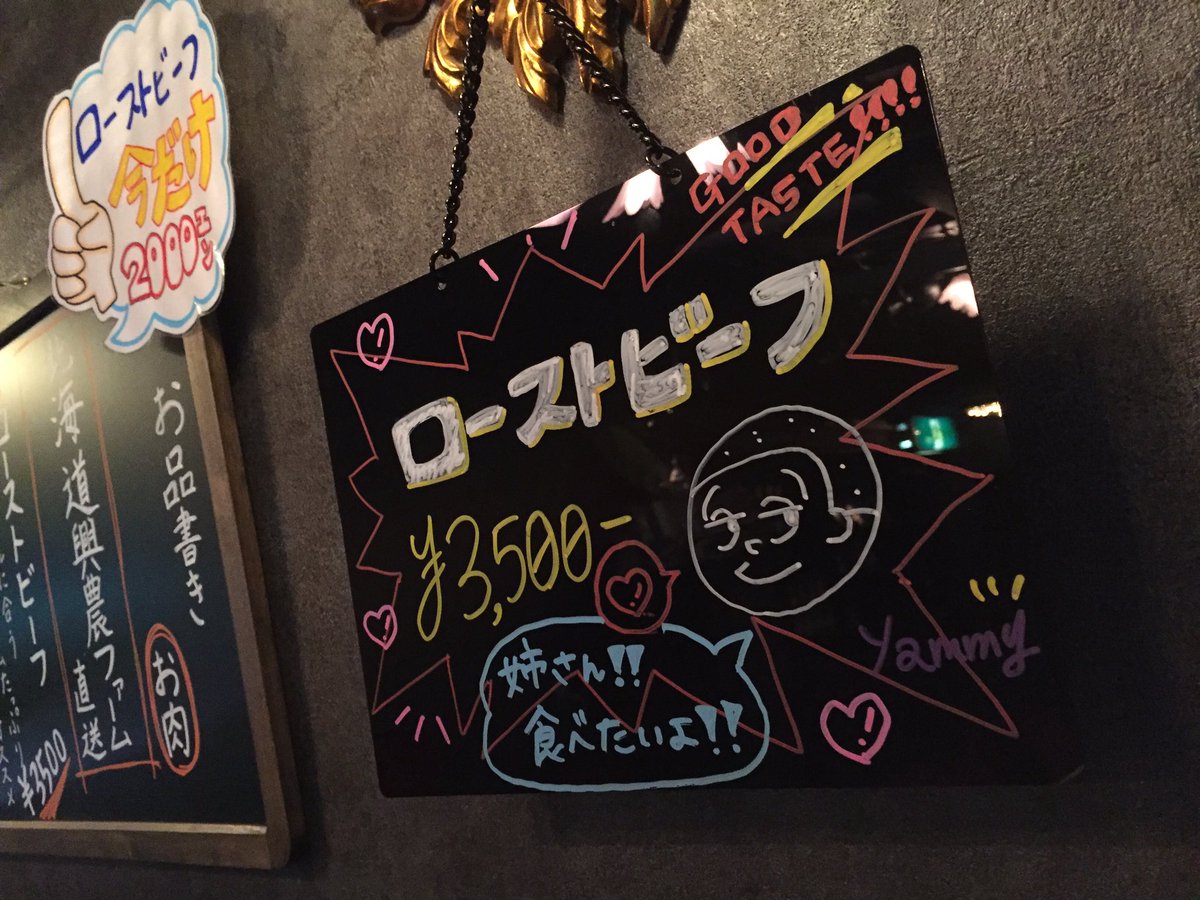 ローストビーフ
今だけ
2000エン
お品書き
お肉
海道興農ファーム
直送
ローストビーフ
¥3500
GOOD
TASTE!!!!
ローストビーフ
¥3,500-
姉さん!!
食べたいよ!!
Yammy